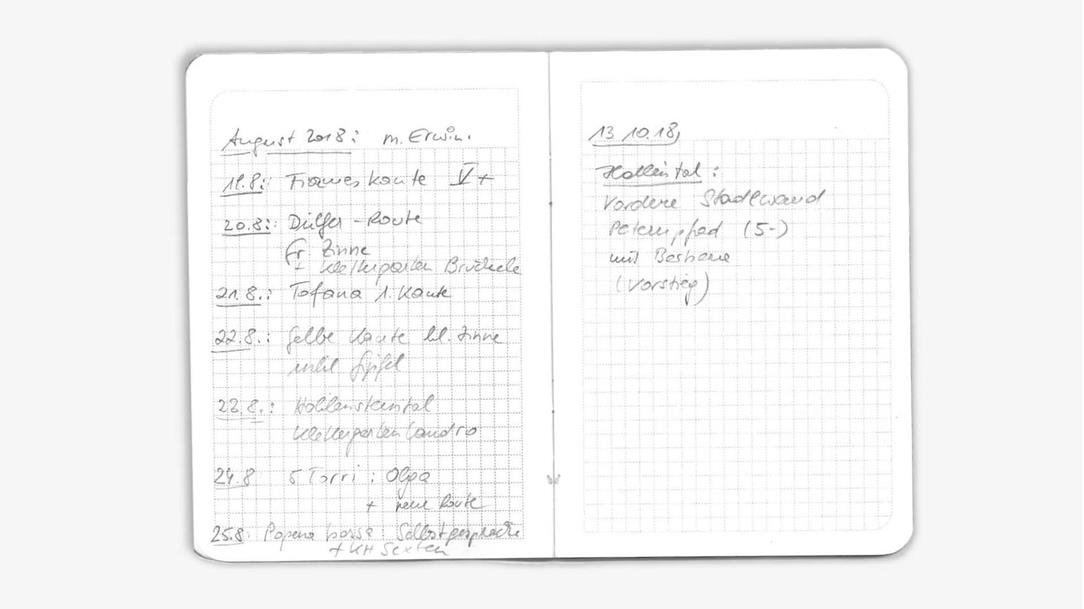 August 2018: m. Erwin.
19.8.: kante V+
20.8.: Dülfer-Route
Gr Zinne
+ Klettergarten Brückele
21.8.: Tofana 1. Kante
22.8.: Gelbe Kante kl. Zinne
inkl Gipfel
23.8.: Höhlensteintal
Klettergarten Landro
24.8 5 Torri: Olga
+ neue Route
25.8: Popena bassa: Selbstgespräche
+ KH Sexten
13.10.18,
Höllental:
Vordere Stadelwand
Peternpfad (5-)
mit
(Vorstieg)